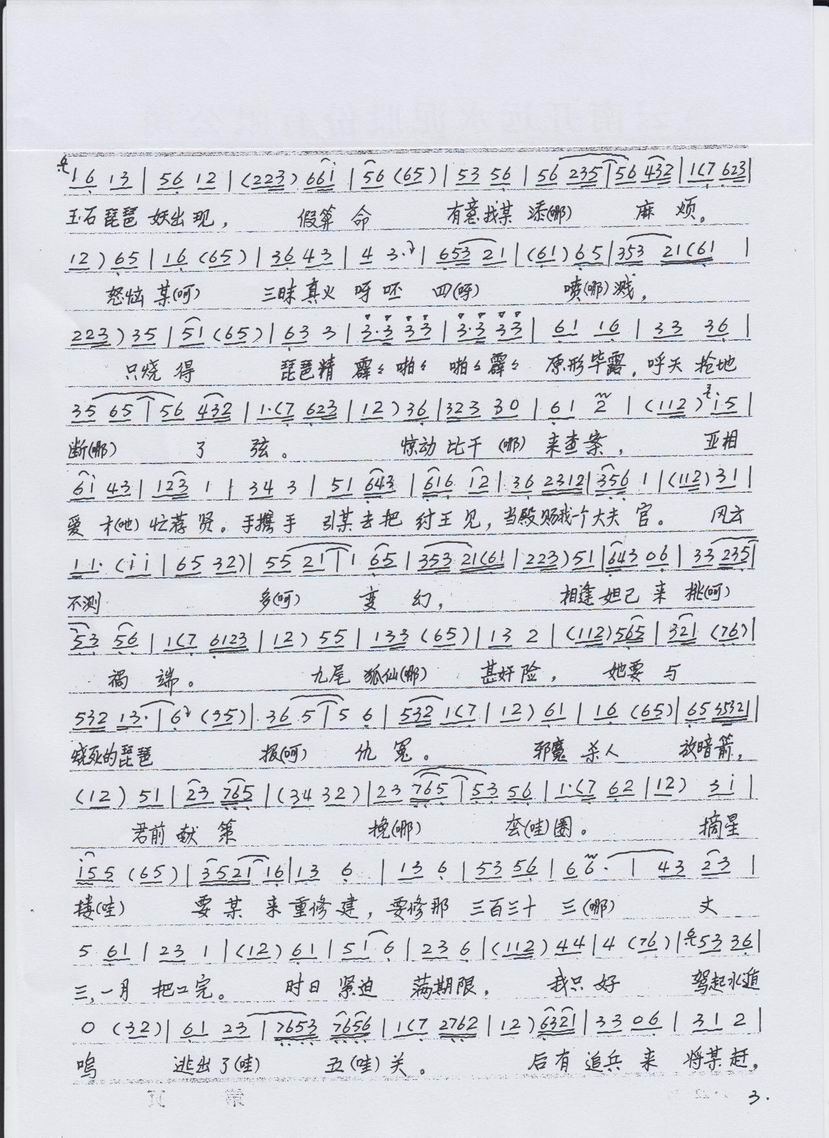 16 13 | 56 12 | (223) 66i | 56 (65) | 53 56 | 56 235 | 56 432 | 1(7 623 |
玉石琵琶妖出现， 假算命 有意找某添(哪) 麻烦。
12) 65 | 16 (65) | 36 43 | 4 3· | 653 21 | (61) 65 | 353 21(61 |
怒恼某(呵) 三昧真火呀呸四(呀) 喷(哪)溅，
223) 35 | 51 (65) | 63 3 | 3·3 33 | 3·3 33 | 61 16 | 33 36 |
只烧得 琵琶精霹々啪々 啪々霹々 原形毕露，呼天抢地
35 65 | 56 432 | 1·(7 623 | 12) 36 | 323 30 | 61 2 | (112) i5 |
断(哪) 了弦。 惊动比干(哪)来查案， 亚相
6i 43 | 123 1 | 34 3 | 51 643 | 616 12 | 36 2312 | 356 1 | (112) 31 |
爱才(吔)忙荐贤。手携手 引某去把纣王见，当殿赐我一个大夫官。 风云
11· (ii | 65 32) | 55 21 | 1 65 | 353 21(61 | 223) 51 | 643 06 | 33 235 |
不测 多(呵) 变幻， 相逢妲己来挑(呵)
53 56 | 1(7 6123 | 12) 55 | 133 (65) | 13 2 | (112) 565 | 321 (76) |
祸端。 九尾狐仙(哪) 甚奸险， 她要与
532 13· | 6 (35) | 36 5 | 5 6 | 532 1(7 | 12) 61 | 16 (65) | 65 3532 |
烧死的琵琶 报(呵) 仇冤。 邪魔杀人 放暗箭，
(12) 51 | 23 765 | (34 32) | 23 765 | 53 56 | 1·(7 62 | 12) 3i |
君前献策 挽(哪) 套(哇)圈。 摘星
i55 (65) | 3521 16 | 13 6 | 13 6 | 53 56 | 66· | 43 23 |
楼(哇) 要某来重修建，要修那 三百三十三(哪) 丈
5 61 | 23 1 | (12) 61 | 51 6 | 23 6 | (112) 44 | 4 (76) | 53 36 |
三，一月把工完。 时日紧迫 满期限， 我只好 驾起水遁
0 (32) | 61 23 | 7653 7656 | 1(7 2762 | 12) 6321 | 33 06 | 31 2 |
呜 逃出了(哇) 五(哇)关。 后有追兵来将某赶，
3.